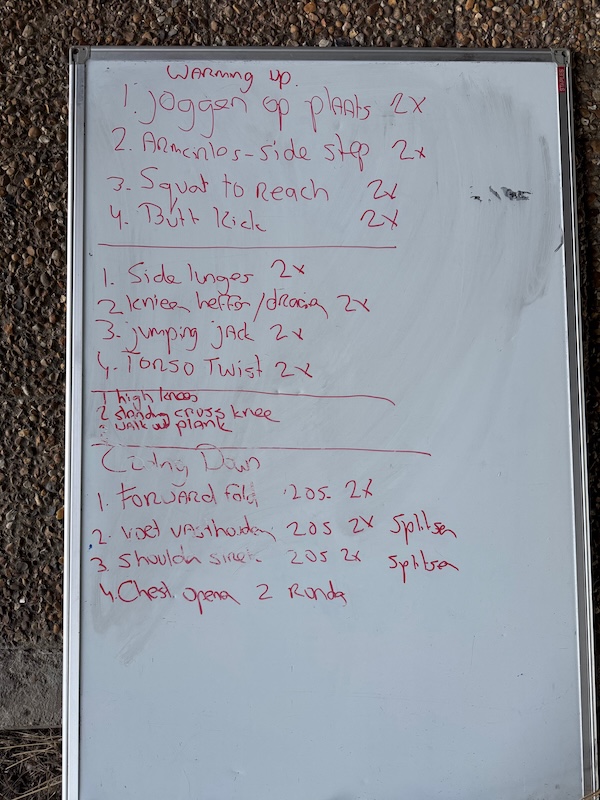 WARMING UP.
1. Joggen op plaats 2x
2. Armcirlos-side step 2x
3. Squat to Reach 2x
4. Butt Kick 2x
1. Side lunges 2x
2 knieen heffen/draaien 2x
3. jumping jack 2x
4. Torso Twist 2x
1 high knees
2 standing cross knee
walk out plank
Down
1. Forward fold 20s 2x
2. voet vasthouden 20s 2x Splitsen
3. Shoulder 20s 2x Splitsen
4. Chest opener 2 Rondes